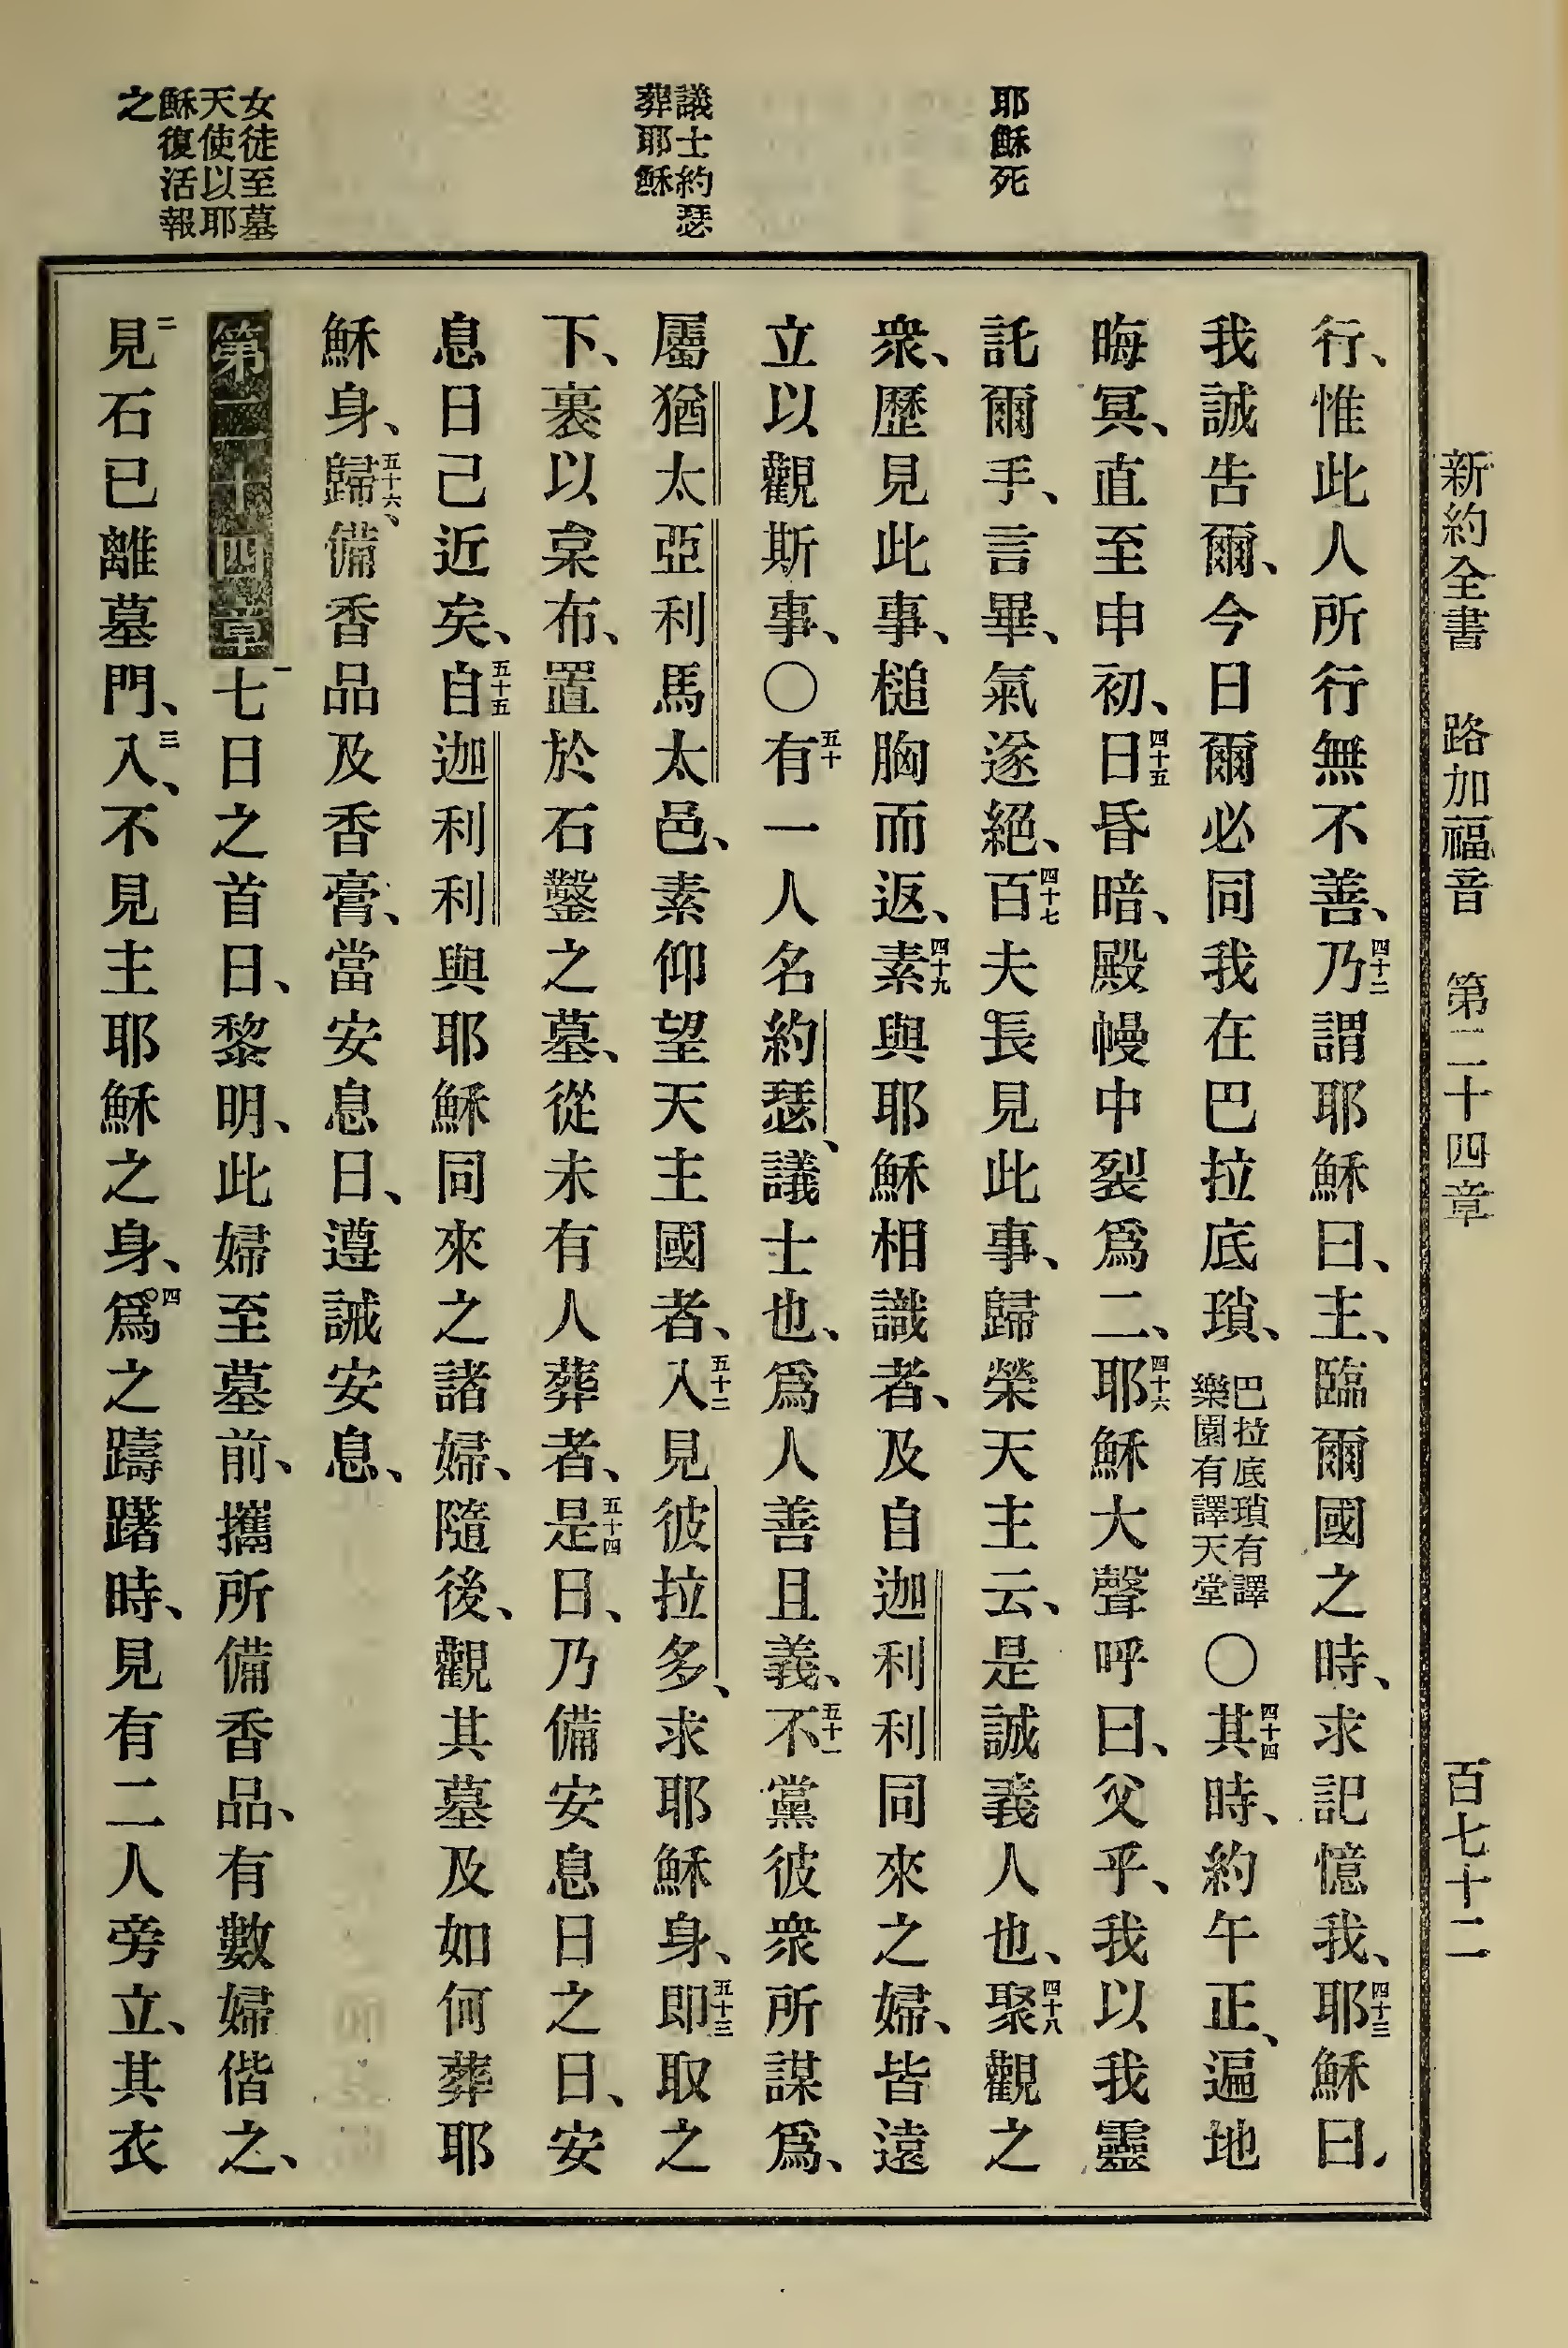 新約全書 路加福音 第二十四章 百七十二
耶穌死
議士約瑟
葬耶穌
女徒至墓
天使以耶
穌復活報
之
行、惟此人所行無不善、四十二乃謂耶穌曰、主、臨爾國之時、求記憶我、四十三耶穌曰、
我誠告爾、今日爾必同我在巴拉底瑣、巴拉底瑣有譯樂園有譯天堂〇四十四其時、約午正、遍地
晦冥、直至申初、四十五日昏暗、殿幔中裂爲二、四十六耶穌大聲呼曰、父乎、我以我靈
託爾手、言畢、氣遂絕、四十七百夫長見此事、歸榮天主云、是誠義人也、四十八聚觀之
衆、歷見此事、槌胸而返、四十九素與耶穌相識者、及自迦利利同來之婦、皆遠
立以觀斯事、〇五十有一人名約瑟、議士也、爲人善且義、五十一不黨彼衆所謀爲、
屬猶太亞利馬太邑、素仰望天主國者、五十二入見彼拉多、求耶穌身、五十三即取之
下、裹以枲布、置於石鑿之墓、從未有人葬者、五十四是日、乃備安息日之日、安
息日己近矣、五十五自迦利利與耶穌同來之諸婦、隨後、觀其墓及如何葬耶
穌身、五十六、歸備香品及香膏、當安息日、遵誡安息、
第二十四章 一七日之首日、黎明、此婦至墓前、攜所備香品、有數婦偕之、
二見石已離墓門、三入、不見主耶穌之身、四爲之躊躇時、見有二人旁立、其衣